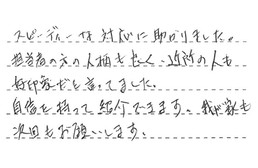 スピーディーな対応に助かりました。
担当者の方の人柄も良く、近所の人も
好印象だと言ってました。
自信を持って紹介できます。我が家も
次回もお願いします。